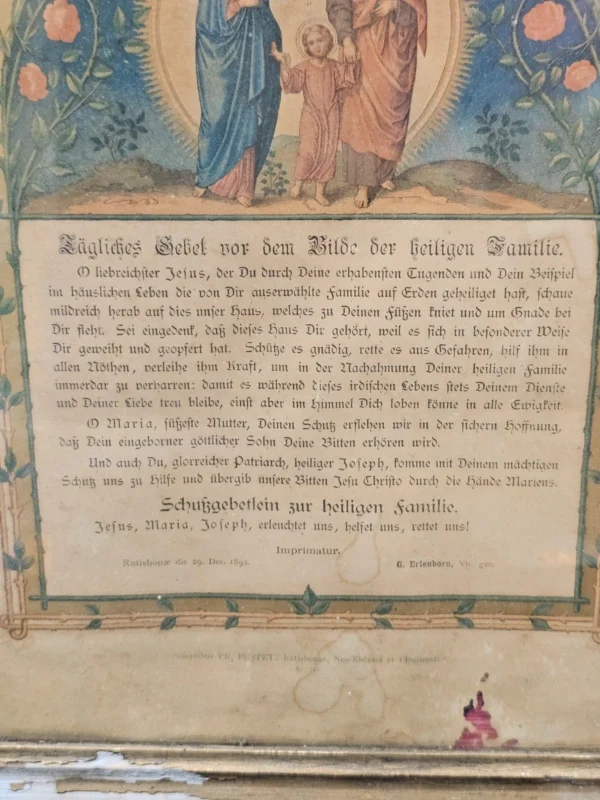 Tägliches Gebet vor dem Bilde der heiligen Familie.
O liebreichster Jesus, der Du durch Deine erhabensten Tugenden und Dein Beispiel
im häuslichen Leben die von Dir auserwählte Familie auf Erden geheiliget hast, schaue
mildreich herab auf dies unser Haus, welches zu Deinen Füßen kniet und um Gnade bei
Dir fleht. Sei eingedenk, daß dieses Haus Dir gehört, weil es sich in besonderer Weise
Dir geweiht und geopfert hat. Schütze es gnädig, rette es aus Gefahren, hilf ihm in
allen Nöthen, verleihe ihm Kraft, um in der Nachahmung Deiner heiligen Familie
immerdar zu verharren: damit es während dieses irdischen Lebens stets Deinem Dienste
und Deiner Liebe treu bleibe, einst aber im Himmel Dich loben könne in alle Ewigkeit.
O Maria, süßeste Mutter, Deinen Schutz erflehen wir in der sichern Hoffnung,
daß Dein eingeborner göttlicher Sohn Deine Bitten erhören wird.
Und auch Du, glorreicher Patriarch, heiliger Joseph, komme mit Deinem mächtigen
Schutz uns zu Hilfe und übergib unsere Bitten Jesu Christo durch die Hände Mariens.
Schutzgebetlein zur heiligen Familie.
Jesus, Maria, Joseph, erleuchtet uns, helfet uns, rettet uns!
Imprimatur.
Ratisbonæ die 29. Dec. 1892. G. Erlenborn, Vic. gen.
Sumptibus FR. PUSTET: Ratisbonæ, Neo-Eboraci et Cincinnati